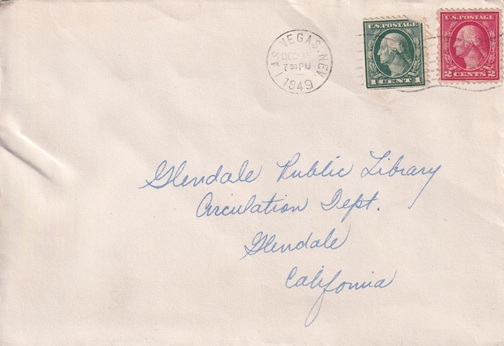 LAS VEGAS, NEV.
DEC
7 30 PM
1949
U.S. POSTAGE
1 CENT 1
U.S. POSTAGE
2 CENTS 2
Glendale Public Library
Circulation Dept.
Glendale
California